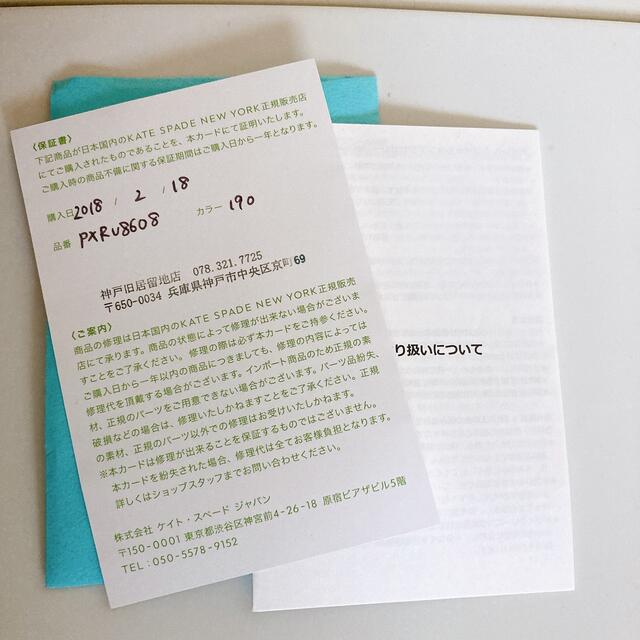 〈保証書〉
下記商品が日本国内のKATE SPADE NEW YORK正規販売店
にてご購入されたものであることを、本カードにて証明いたします。
ご購入時の商品不備に関する保証期間はご購入日から一年となります。
購入日 2018 / 2 / 18
品番 PXRU8608 カラー 190
神戸旧居留地店 078.321.7725
〒650-0034 兵庫県神戸市中央区京町69
〈ご案内〉
商品の修理は日本国内のKATE SPADE NEW YORK正規販売
店にて承ります。商品の状態によって修理が出来ない場合がございま
すことをご了承ください。修理の際は必ず本カードをご持参ください。
ご購入日から一年以内の商品につきましても、修理の内容によっては
修理代を頂戴する場合がございます。インポート商品のため正規の素
材、正規のパーツをご用意できない場合がございます。パーツ品紛失、
破損などの場合は、修理いたしかねますことをご了承ください。正規
の素材、正規のパーツ以外での修理はお受けいたしかねます。
※本カードは修理が出来ることを保証するものではございません。
本カードを紛失された場合、修理代は全てお客様負担となります。
詳しくはショップスタッフまでお問い合わせください。
株式会社 ケイト・スペード ジャパン
〒150-0001 東京都渋谷区神宮前4-26-18 原宿ピアザビル5階
TEL:050-5578-9152
り扱いについて